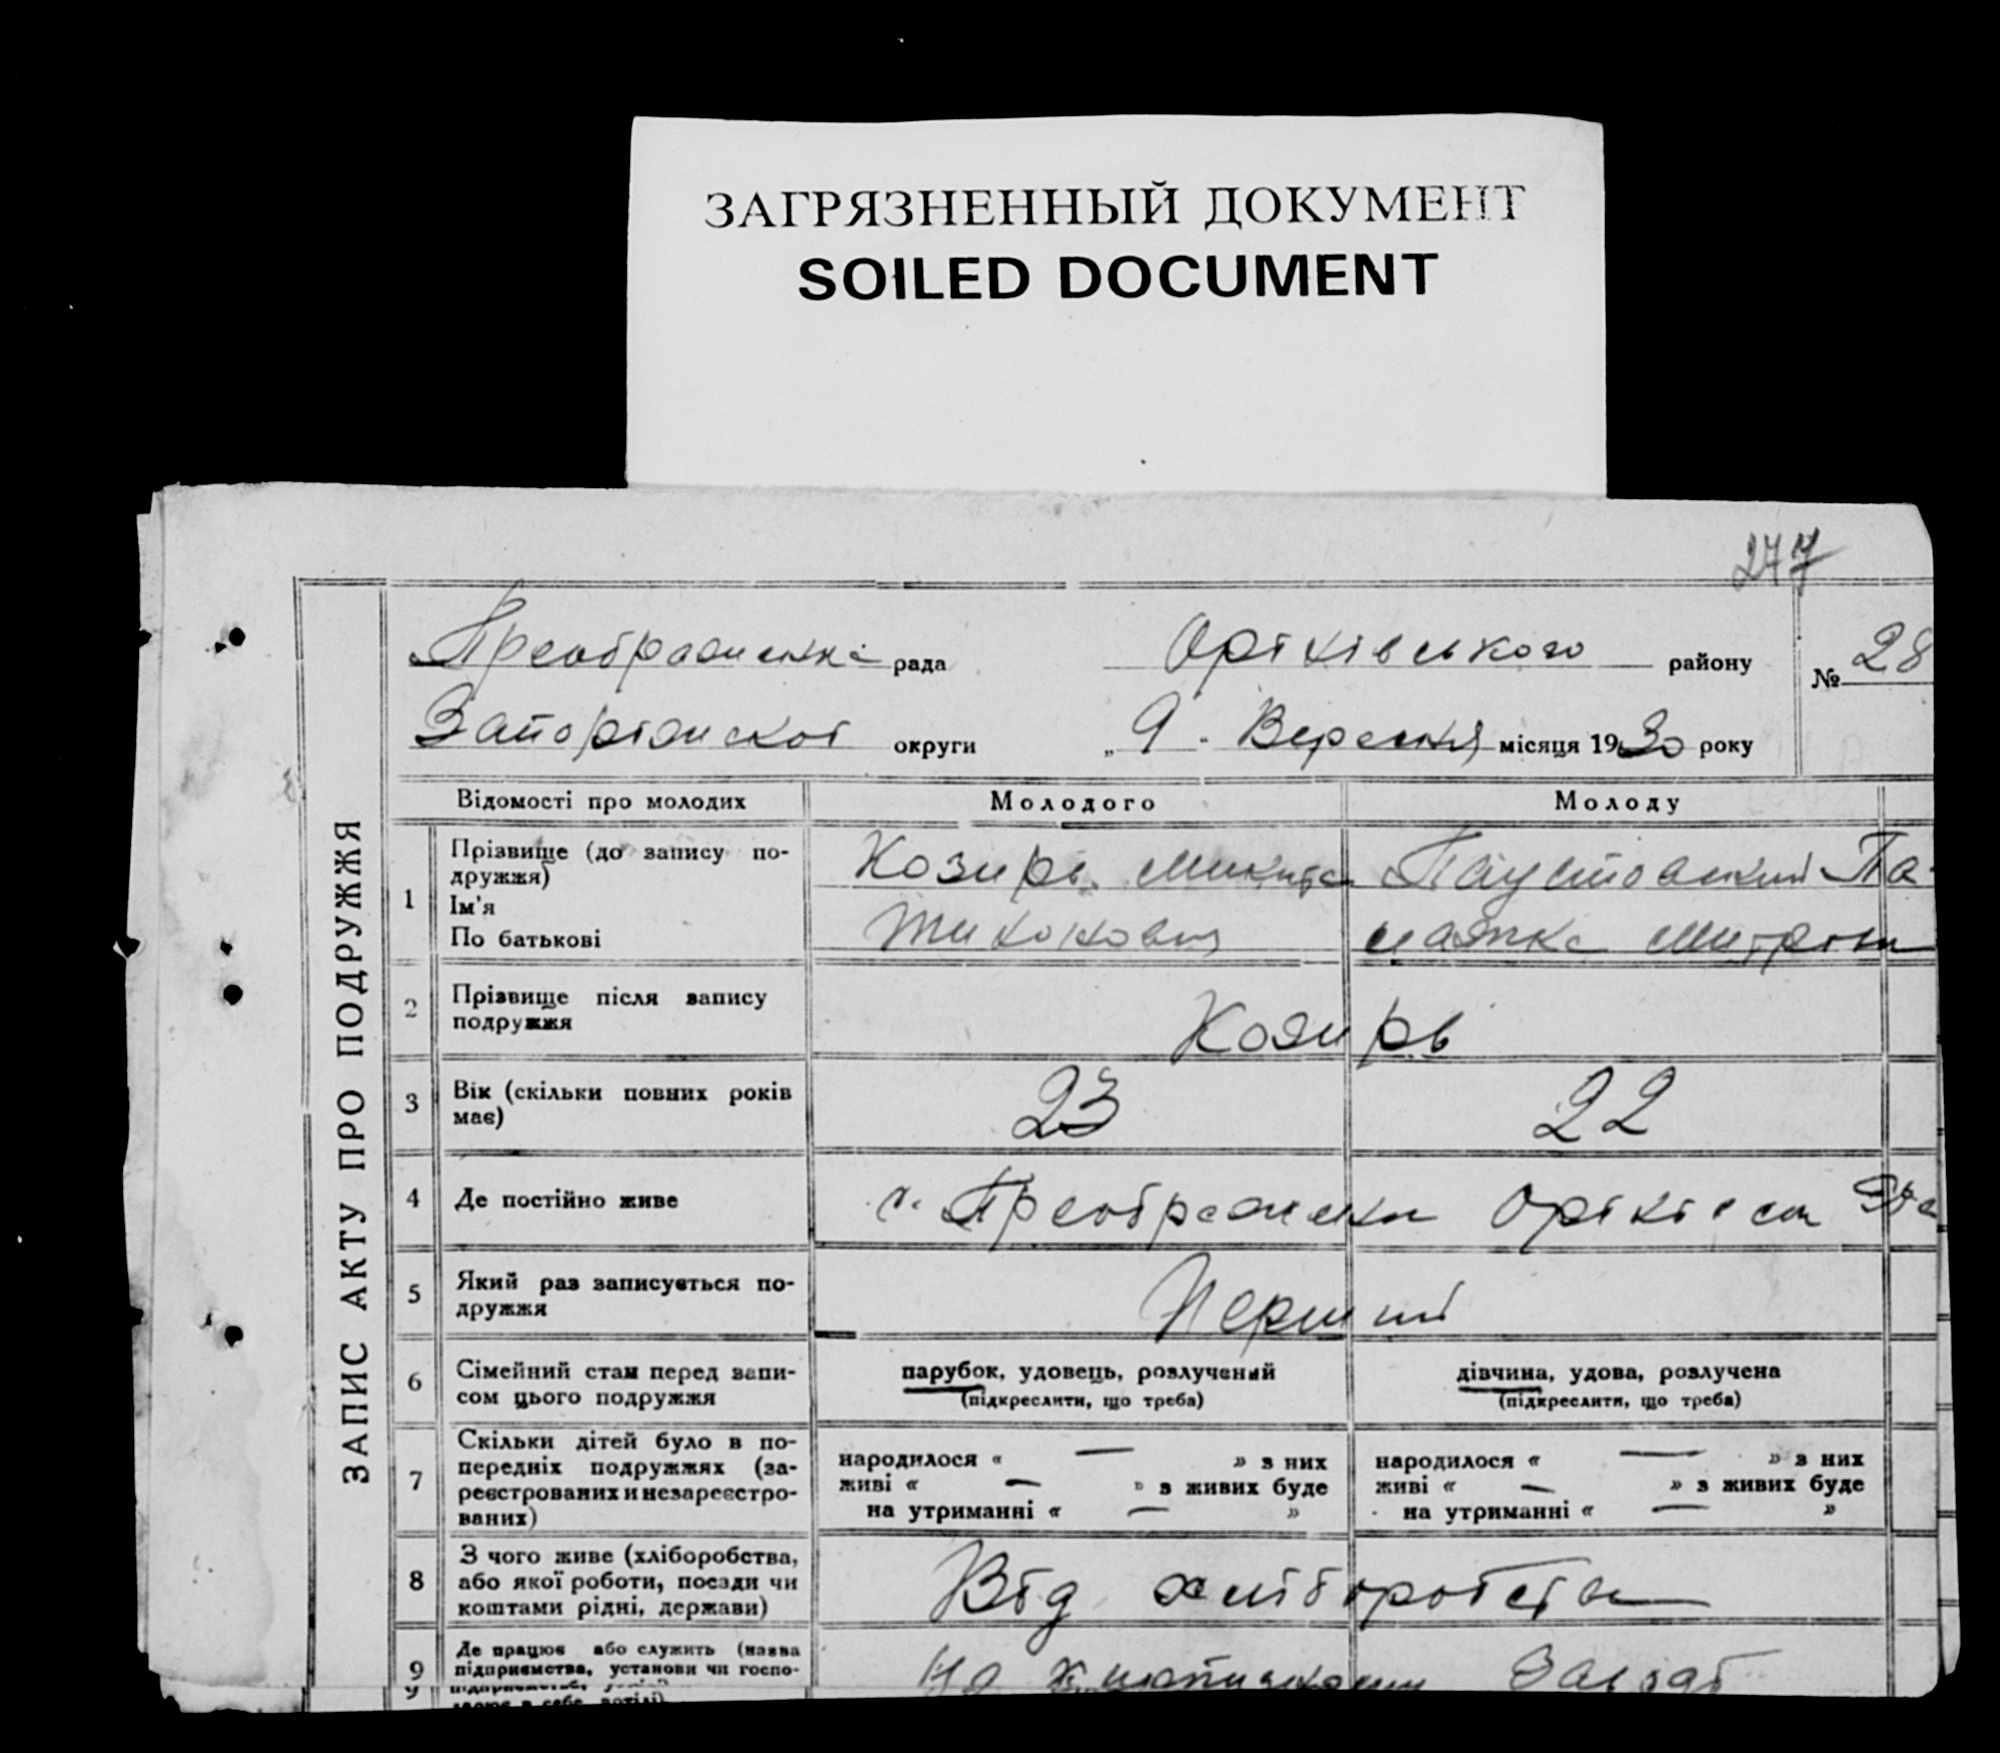 ЗАГРЯЗНЕННЫЙ ДОКУМЕНТ
SOILED DOCUMENT
277
Преображенка рада Оріхівського району № 28
Запоріжскої округи „ 9 . Вересня місяця 1930 року
ЗАПИС АКТУ ПРО ПОДРУЖЖЯ
Відомості про молодих Молодого Молоду
1 Прізвище (до запису по-
дружжя)
Ім'я
По батькові
Козирь Микита
Тихонович
Паустовский
2 Прізвище після запису
подружжя
Козирь
3 Вік (скільки повних років
має)
23 22
4 Де постійно живе
с. Преображенка
5 Який раз записується по-
дружжя
Перший
6 Сімейний стан перед запи-
сом цього подружжя
парубок, удовець, розлучений
(підкреслити, що треба)
дівчина, удова, розлучена
(підкреслити, що треба)
7 Скільки дітей було в по-
передніх подружжях (за-
реєстрованих и незареєстро-
ваних)
народилося « — » з них
живі « — » з живих буде
на утриманні « — »
народилося « — » з них
живі « — » з живих буде
на утриманні « — »
8 З чого живе (хліборобства,
або якої роботи, посади чи
коштами рідні, держави)
Від хліборобства
9 Де працює або служить (назва
підприємства, установи чи госпо-